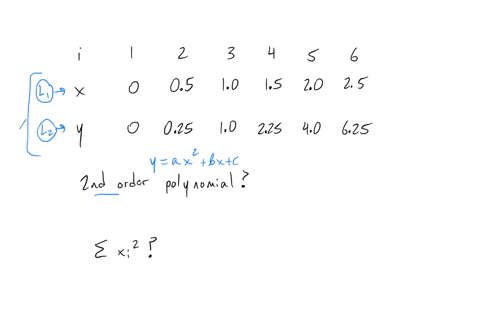 i 1 2 3 4 5 6
L₁ → x 0 0.5 1.0 1.5 2.0 2.5
L₂ → y 0 0.25 1.0 2.25 4.0 6.25
y = ax² + bx + c
2nd order polynomial?
Σ xᵢ² ?